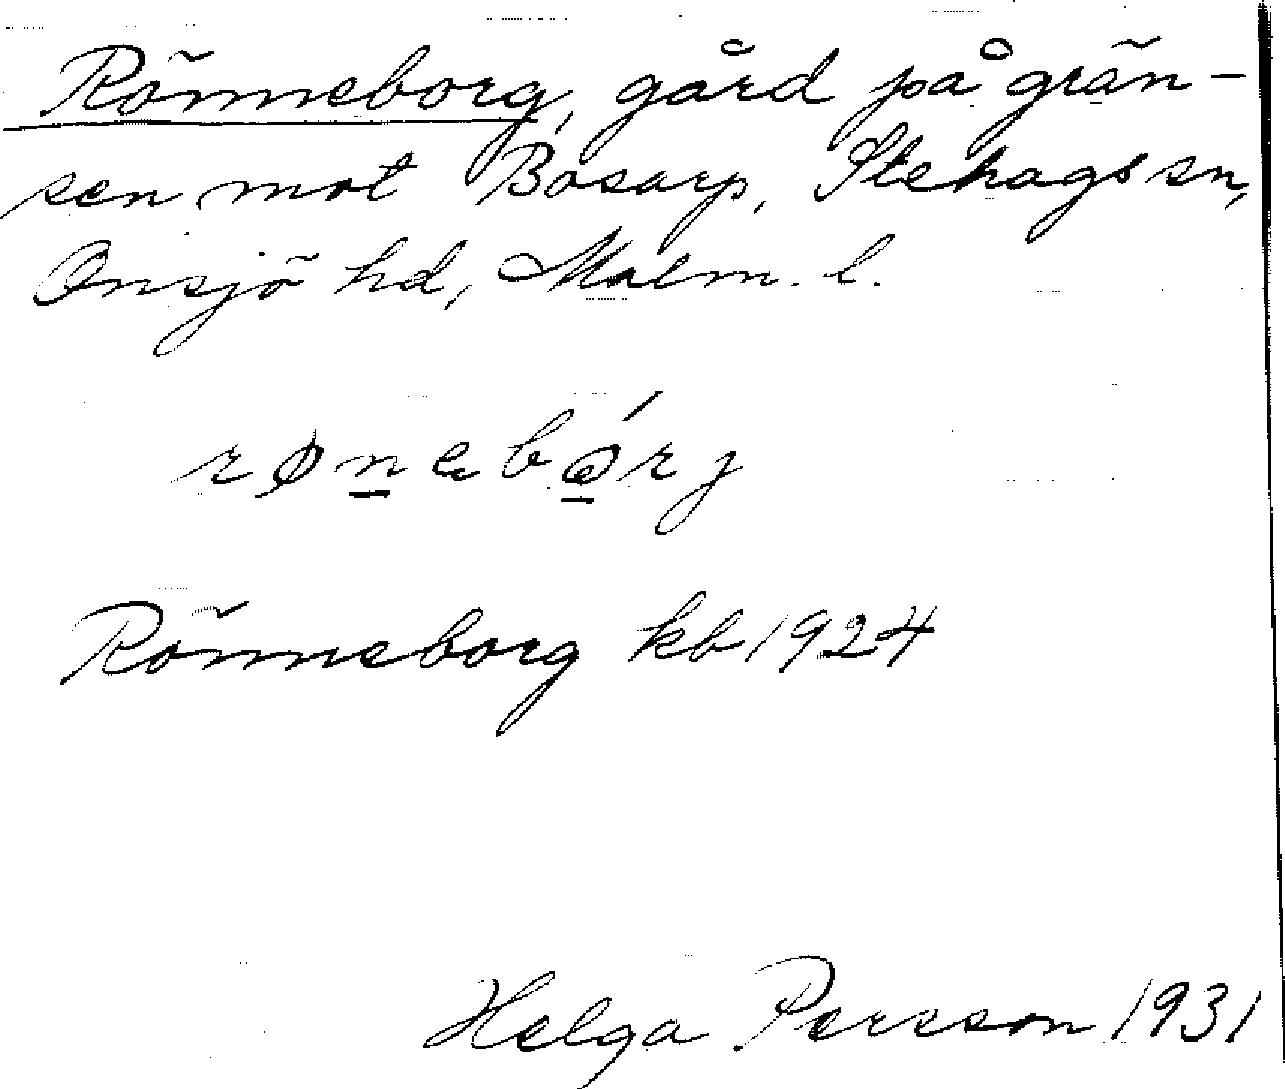 Rönneborg, gård på grän-
sen mot Bosarp, Stehags sn,
Onsjö hd, Malm. l.
rønebǿrj
Rönneborg kb 1924
Helga Persson 1931